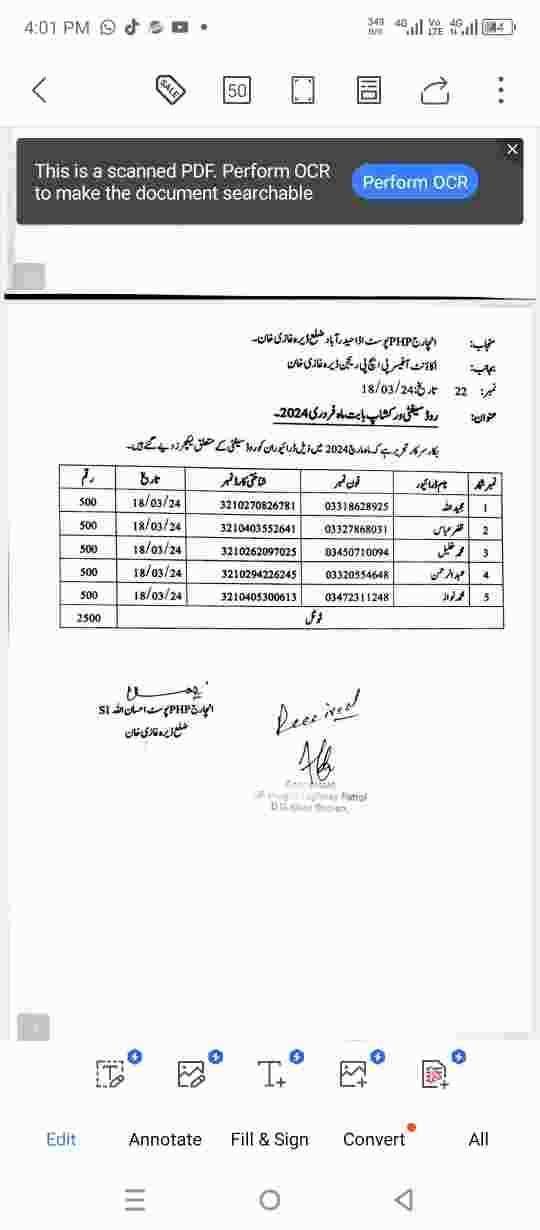 4:01 PM
349 B/s 4G Vo LTE 4G 4
SALE 50
This is a scanned PDF. Perform OCR
to make the document searchable
Perform OCR
منجاب: انچارج PHP پوسٹ اڈا حیدرآباد ضلع ڈیرہ غازی خان۔
بجانب: اکاؤنٹ آفیسر پی ایچ پی ریجن ڈیرہ غازی خان
نمبر: 22 تاریخ: 18/03/24
عنوان: روڈ سیفٹی ورکشاپ بابت ماہ فروری 2024۔
بکار سرکار تحریر ہے کہ ماہ مارچ 2024 میں ذیل ڈرائیوران کو روڈ سیفٹی کے متعلق لیکچرز دیے گئے ہیں۔
نمبر شمار نام ڈرائیور فون نمبر شناختی کارڈ نمبر تاریخ رقم
1 مجید اللہ 03318628925 3210270826781 18/03/24 500
2 ظفر عباس 03327868031 3210403552641 18/03/24 500
3 محمد خلیل 03450710094 3210262097025 18/03/24 500
4 عبدالرحمن 03320554648 3210294226245 18/03/24 500
5 محمد نواز 03472311248 3210405300613 18/03/24 500
ٹوٹل 2500
انچارج PHP پوسٹ احسان اللہ SI
ضلع ڈیرہ غازی خان
Received
Highway Patrol
D.G.Khan Region,
Edit Annotate Fill & Sign Convert All